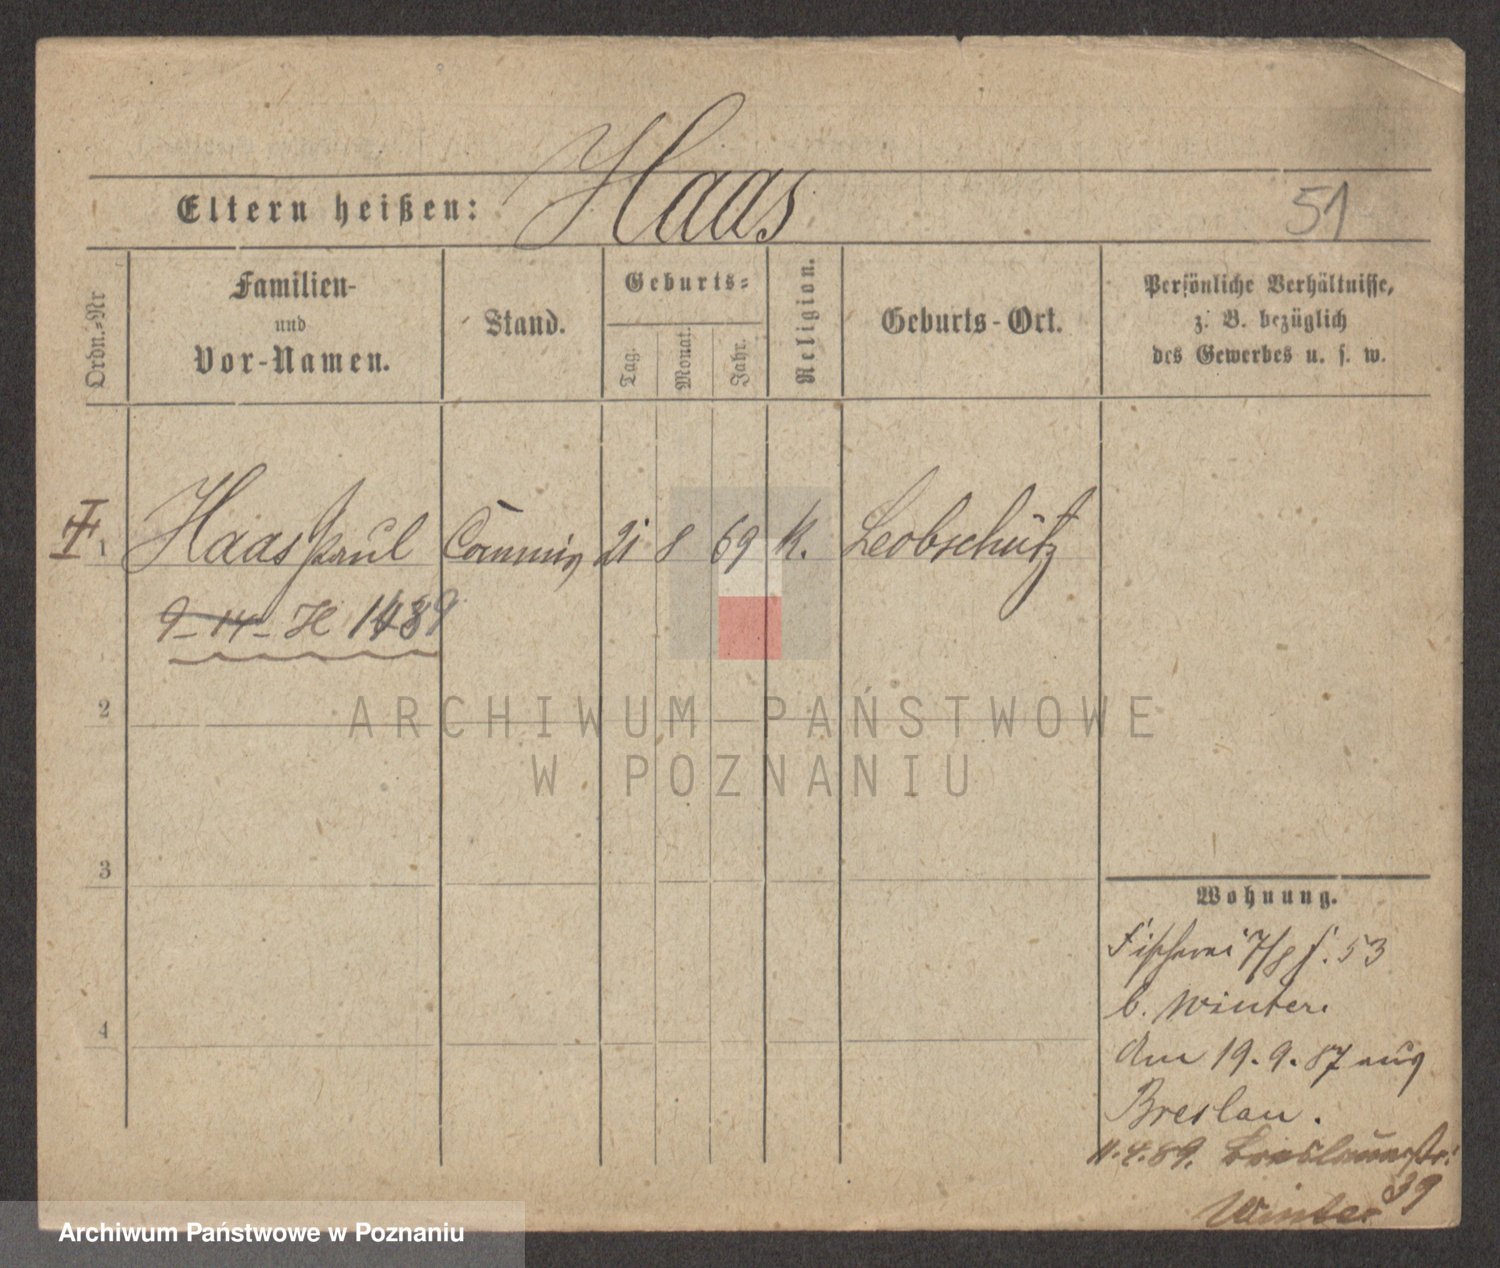 Eltern heißen: Haas
51
Ordn.-Nr
Familien-
und
Vor-Namen.
Stand.
Geburts-
Tag.
Monat.
Jahr.
Religion.
Geburts-Ort.
Persönliche Verhältnisse,
z. B. bezüglich
des Gewerbes u. s. w.
1 Haas Paul Commis 21 8 69 K. Leobschütz
9-14-
2
ARCHIWUM PAŃSTWOWE
W POZNANIU
3
4
Wohnung.
Fischerei 7/8 53
b. Winter.
Am 19. 9. 87 aus
Breslau.
11.4.89. Breslauerstr.
39
Winter
Archiwum Państwowe w Poznaniu